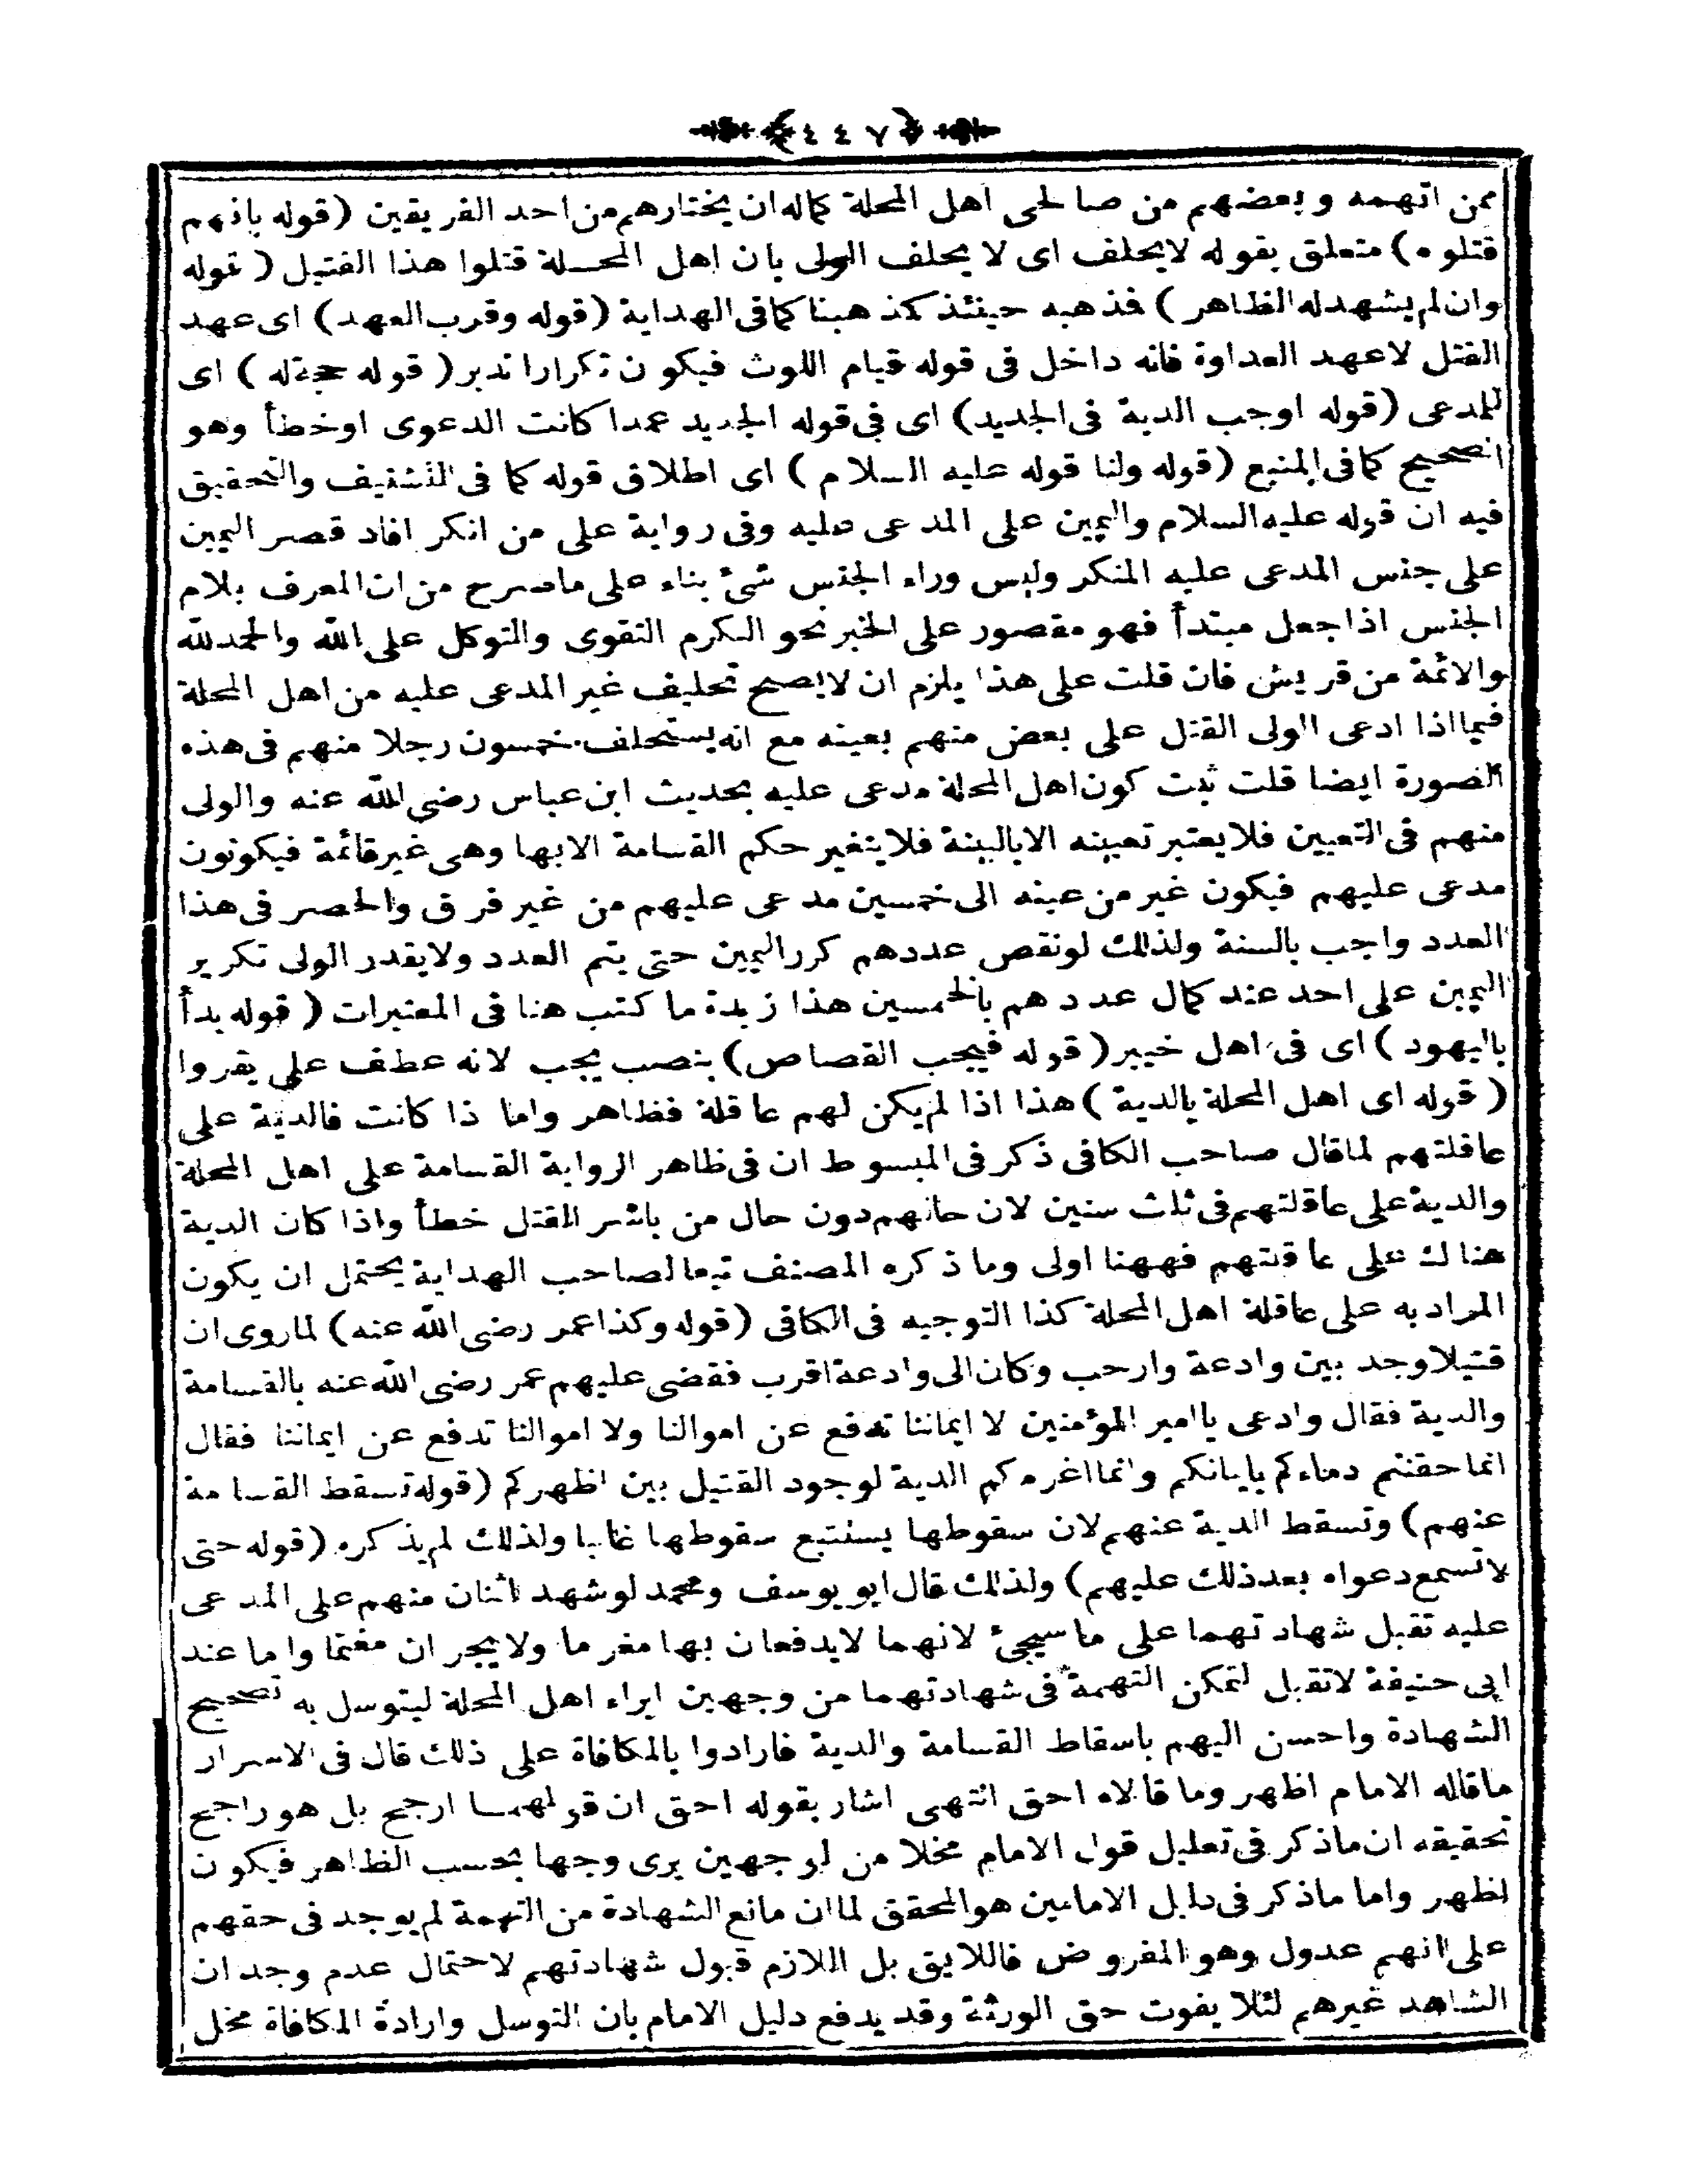 ٤٤٧
ممن اتهمه وبعضهم من صالحى اهل المحلة كماله ان يختارهم من احد الفريقين (قوله بانهم
قتلوه) متعلق بقوله لايحلف اى لا يحلف الولى بان اهل المحلة قتلوا هذا القتيل (قوله
وان لم يشهد له الظاهر) فذهبه حينئذ كمذهبنا كما فى الهداية (قوله وقرب العهد) اى عهد
القتل لاعهد العداوة فانه داخل فى قوله قيام اللوث فيكون تكرارا تدبر (قوله حجة له) اى
للمدعى (قوله اوجب الدية فى الجديد) اى فى قوله الجديد عمدا كانت الدعوى اوخطأ وهو
الصحيح كما فى المنبع (قوله ولنا قوله عليه السلام) اى اطلاق قوله كما فى التشنيف والتحقيق
فيه ان قوله عليه السلام واليمين على المدعى عليه وفى رواية على من انكر افاد قصر اليمين
على جنس المدعى عليه المنكر وليس وراء الجنس شئ بناء على ماصرح من ان المعرف بلام
الجنس اذا جعل مبتدأ فهو مقصور على الخبر نحو الكرم التقوى والتوكل على الله والحمد لله
والائمة من قريش فان قلت على هذا يلزم ان لايصح تحليف غير المدعى عليه من اهل المحلة
فيما اذا ادعى الولى القتل على بعض منهم بعينه مع انه يستحلف خمسون رجلا منهم فى هذه
الصورة ايضا قلت ثبت كون اهل المحلة مدعى عليه بحديث ابن عباس رضى الله عنه والولى
منهم فى التعيين فلايعتبر تعيينه الابالبينة فلايتغير حكم القسامة الابها وهى غير قائمة فيكونون
مدعى عليهم فيكون غير من عينه الى خمسين مدعى عليهم من غير فرق والحصر فى هذا
العدد واجب بالسنة ولذلك لونقص عددهم كرر اليمين حتى يتم العدد ولايقدر الولى تكرير
اليمين على احد عند كمال عددهم بالخمسين هذا زبدة ما كتب هنا فى المعتبرات (قوله بدأ
باليهود) اى فى اهل خيبر (قوله فيجب القصاص) بنصب يجب لانه عطف على يقروا
(قوله اى اهل المحلة بالدية) هذا اذا لم يكن لهم عاقلة فظاهر واما ذا كانت فالدية على
عاقلتهم لماقال صاحب الكافى ذكر فى المبسوط ان فى ظاهر الرواية القسامة على اهل المحلة
والدية على عاقلتهم فى ثلث سنين لان حالهم دون حال من باشر القتل خطأ واذا كان الدية
هناك على عاقلتهم فههنا اولى وما ذكره المصنف تبعا لصاحب الهداية يحتمل ان يكون
المراد به على عاقلة اهل المحلة كذا التوجيه فى الكافى (قوله وكذا عمر رضى الله عنه) لماروى ان
قتيلا وجد بين وادعة وارحب وكان الى وادعة اقرب فقضى عليهم عمر رضى الله عنه بالقسامة
والدية فقال وادعى ياامير المؤمنين لا ايماننا تدفع عن اموالنا ولا اموالنا تدفع عن ايماننا فقال
انما حقنتم دماءكم بايمانكم وانما اغرمكم الدية لوجود القتيل بين اظهركم (قوله تسقط القسامة
عنهم) وتسقط الدية عنهم لان سقوطها يستتبع سقوطها غالبا ولذلك لم يذكره (قوله حتى
لاتسمع دعواه بعد ذلك عليهم) ولذلك قال ابو يوسف ومحمد لوشهد اثنان منهم على المدعى
عليه تقبل شهادتهما على ما سيجئ لانهما لايدفعان بها مغرما ولايجران مغنما واما عند
ابى حنيفة لاتقبل لتمكن التهمة فى شهادتهما من وجهين ابراء اهل المحلة ليتوسل به تصحيح
الشهادة واحسن اليهم باسقاط القسامة والدية فارادوا بالمكافاة على ذلك قال فى الاسرار
ماقاله الامام اظهر وما قالاه احق انتهى اشار بقوله احق ان قولهما ارجح بل هو راجح
تحقيقه ان ماذكر فى تعليل قول الامام مخلا من لوجهين يرى وجها بحسب الظاهر فيكون
اظهر واما ماذكر فى دليل الامامين هوالمحقق لما ان مانع الشهادة من التهمة لم يوجد فى حقهم
على انهم عدول وهو المفروض فاللايق بل اللازم قبول شهادتهم لاحتمال عدم وجدان
الشاهد غيرهم لئلا يفوت حق الورثة وقد يدفع دليل الامام بان التوسل وارادة المكافاة مخل